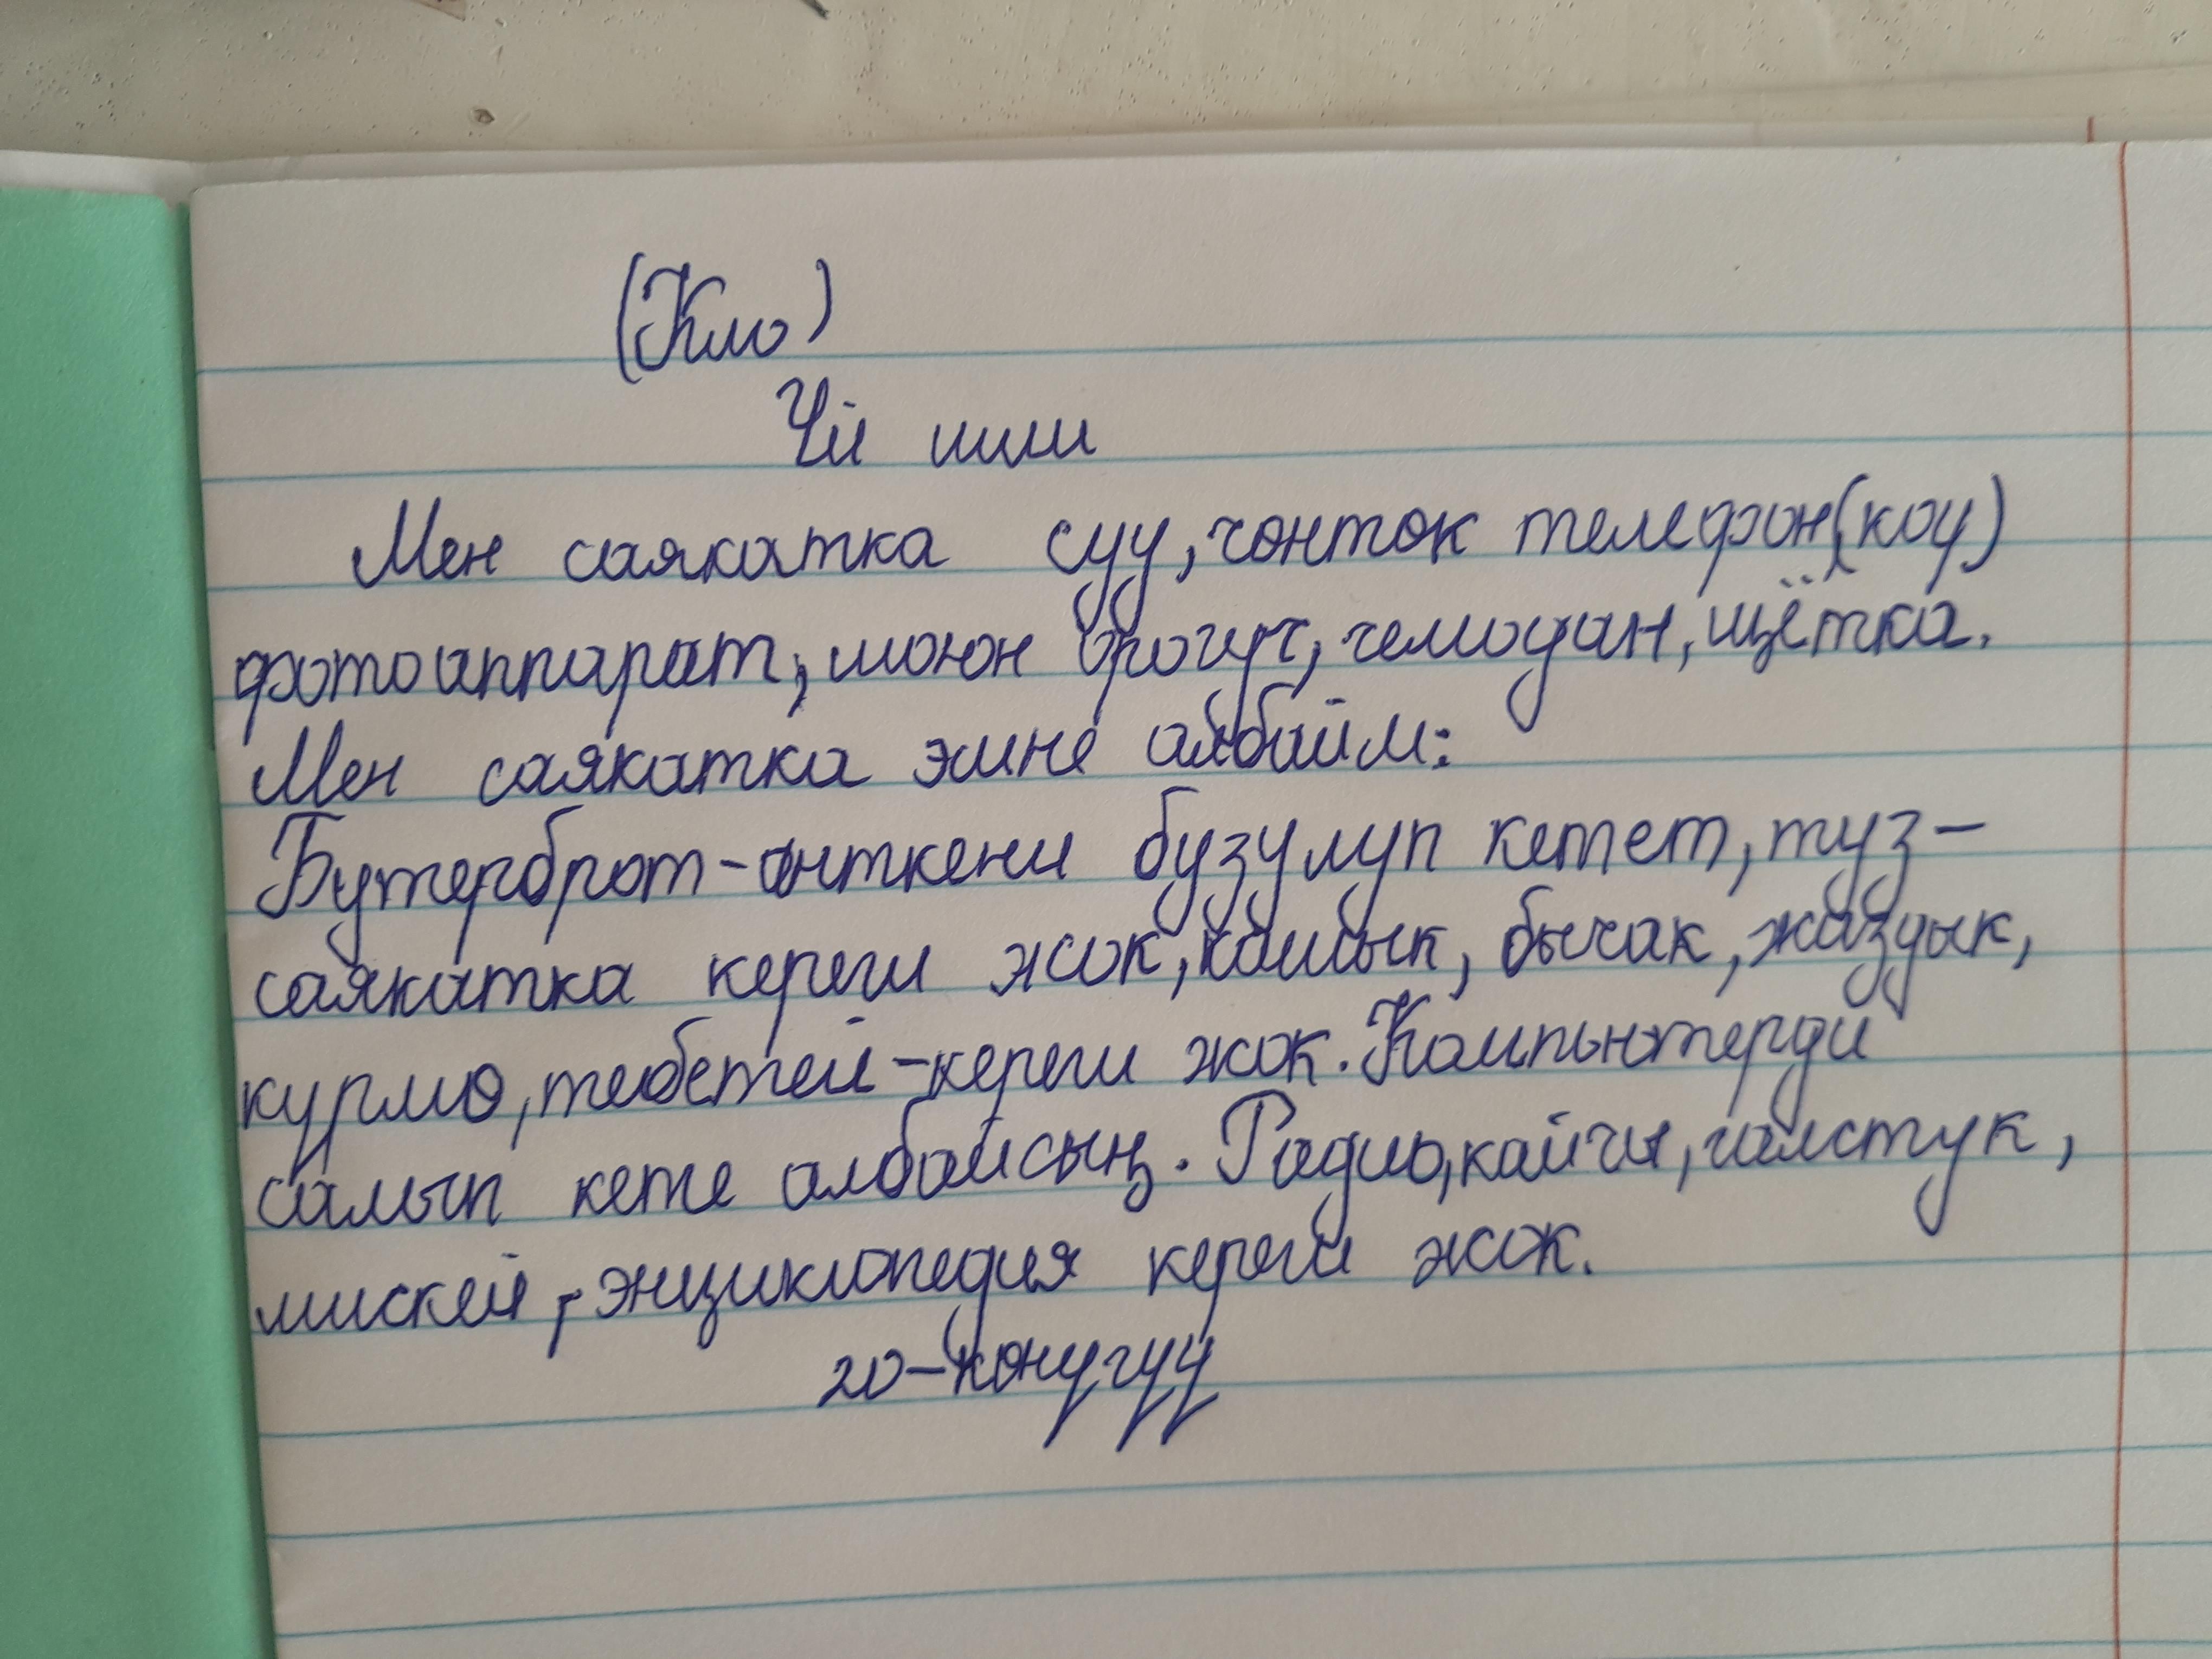 (Кмо)
Үй иши
Мен саякатка суу, чөнтөк телефон, (коу)
фотоаппарат, моюн орогуч, чемодан, щётка.
Мен саякатка эмне албайм:
Бутерброт-анткени бузулуп кетет, туз-
саякатка кереги жок, кашык, бычак, жаздык,
курмо, тебетей-кереги жок. Компьютерди
салып кете албайсың. Радио, кайчы, галстук,
мискей,-энциклопедия кереги жок.
20-көнүгүү